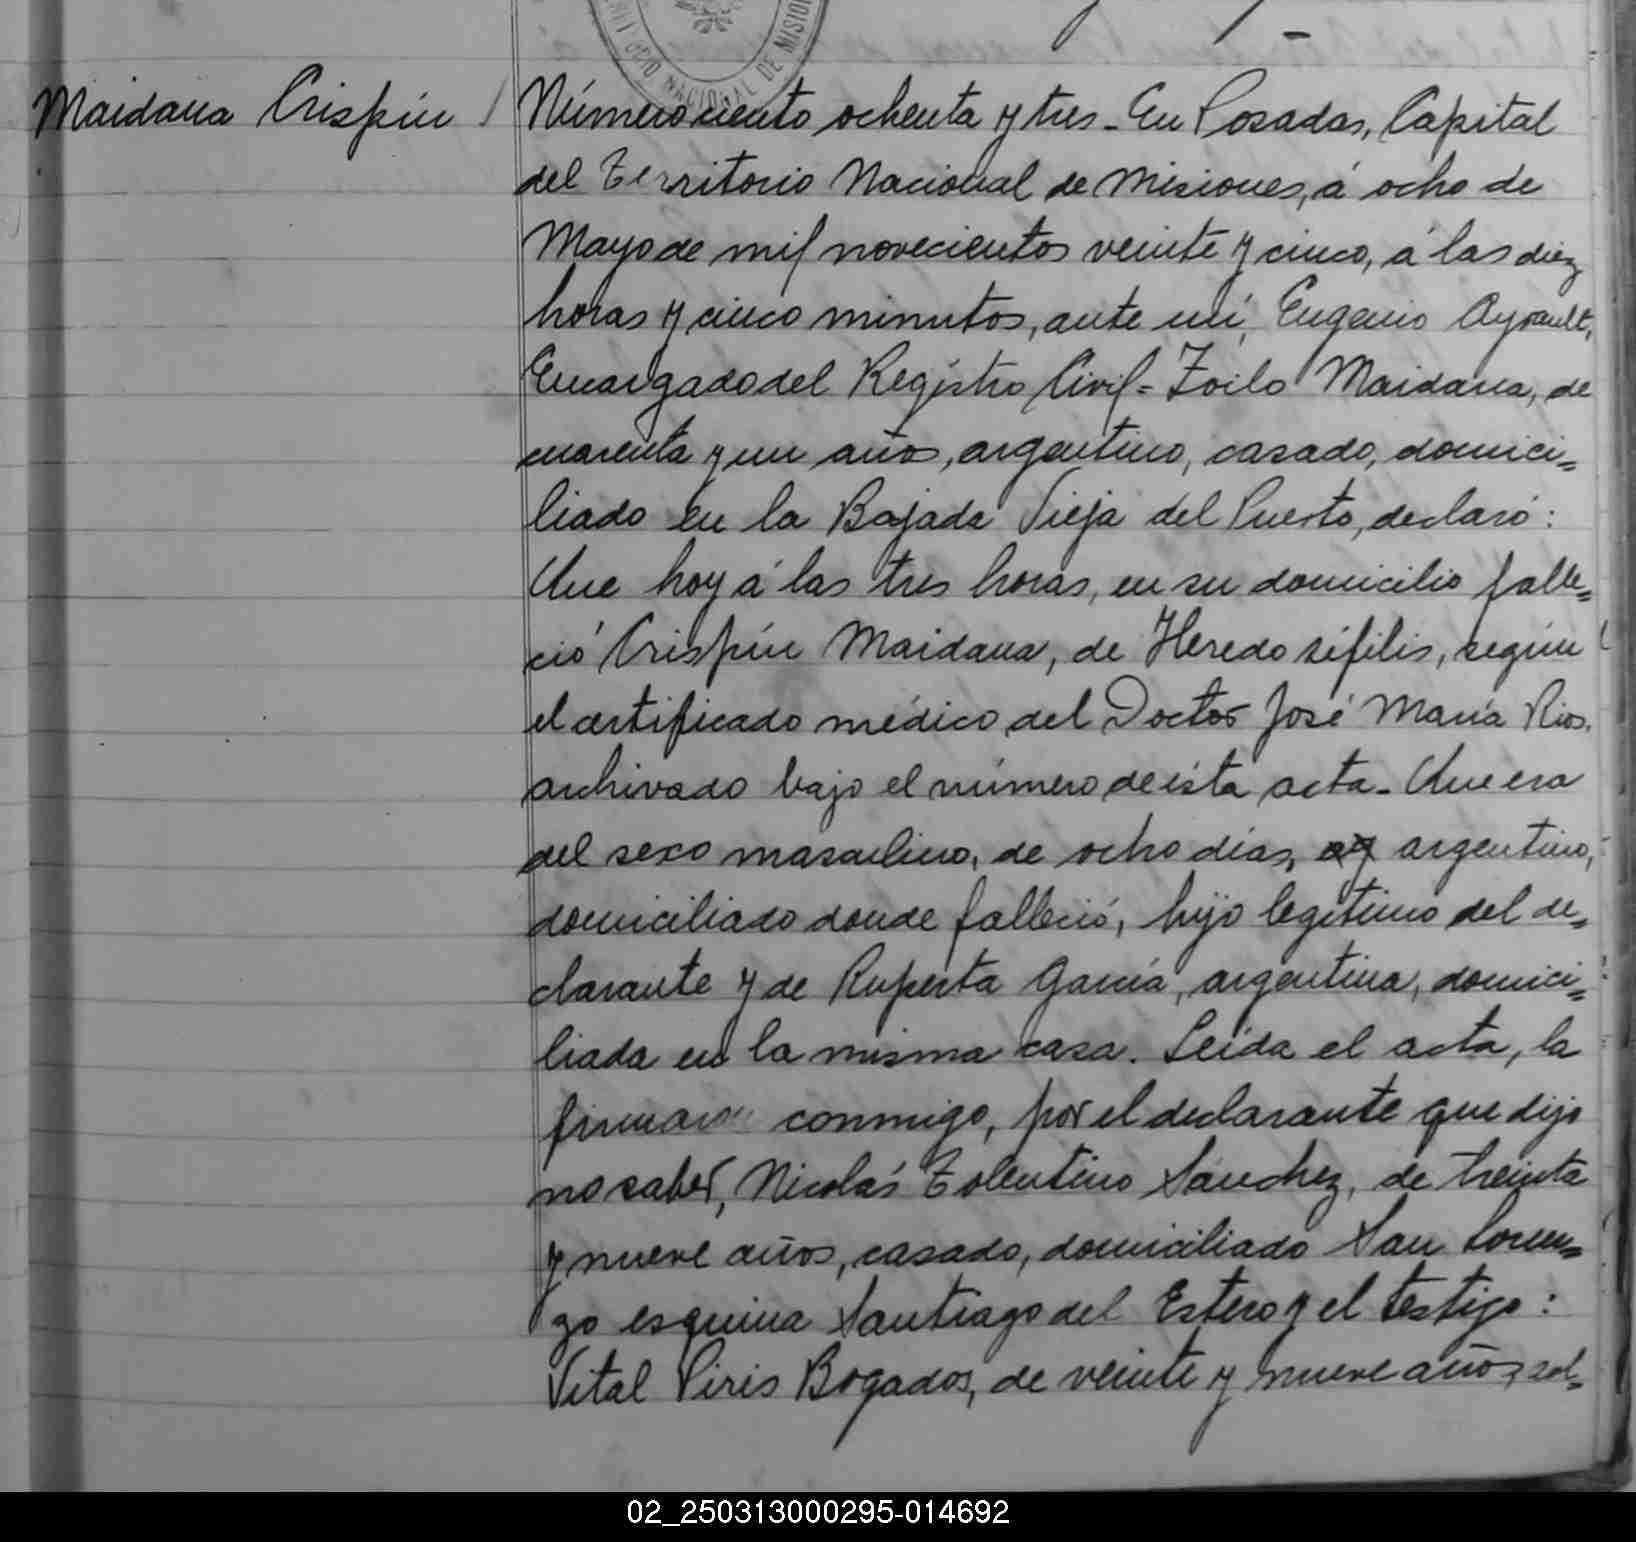 Maidana Crispín
Número ciento ochenta y tres - En Posadas, Capital
del Territorio Nacional de Misiones, á ocho de
Mayo de mil novecientos veinte y cinco, á las diez
horas y cinco minutos, ante mí, Eugenio Ayrault,
Encargado del Registro Civil = Zoilo Maidana, de
cuarenta y un años, argentino, casado, domici=
liado en la Bajada Vieja del Puerto, declaró:
Que hoy á las tres horas, en su domicilio falle=
ció Crispín Maidana, de Heredo sífilis, según
el certificado médico del Doctor José María Rios,
archivado bajo el número de ésta acta - Que era
del sexo masculino, de ocho días, argentino,
domiciliado donde falleció, hijo legítimo del de=
clarante y de Ruperta García, argentina, domici=
liada en la misma casa. Leída el acta, la
firmaron conmigo, por el declarante que dijo
no saber, Nicolás Tolentino Sánchez, de treinta
y nueve años, casado, domiciliado San Loren=
zo esquina Santiago del Estero y el testigo:
Vital Piris Bogados, de veinte y nueve años, sol=
02_250313000295-014692